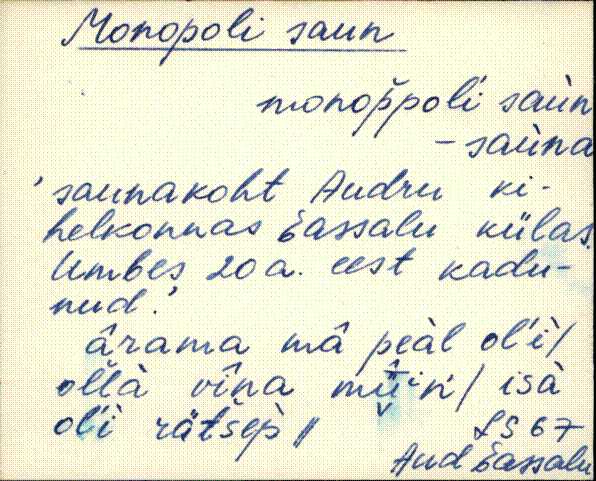 Monopoli saun
monop̆poli saùn
– saùna
'saunakoht Audru ki-
helkonnas Eassalu külas.
Umbes 20 a. eest kadu-
nud.'
ârama mâ peàl ol'ì/
ol̆là vîna mü̂in'/ isà
ol'ì rätšèp̀ //
LS 67
Aud Eassalu